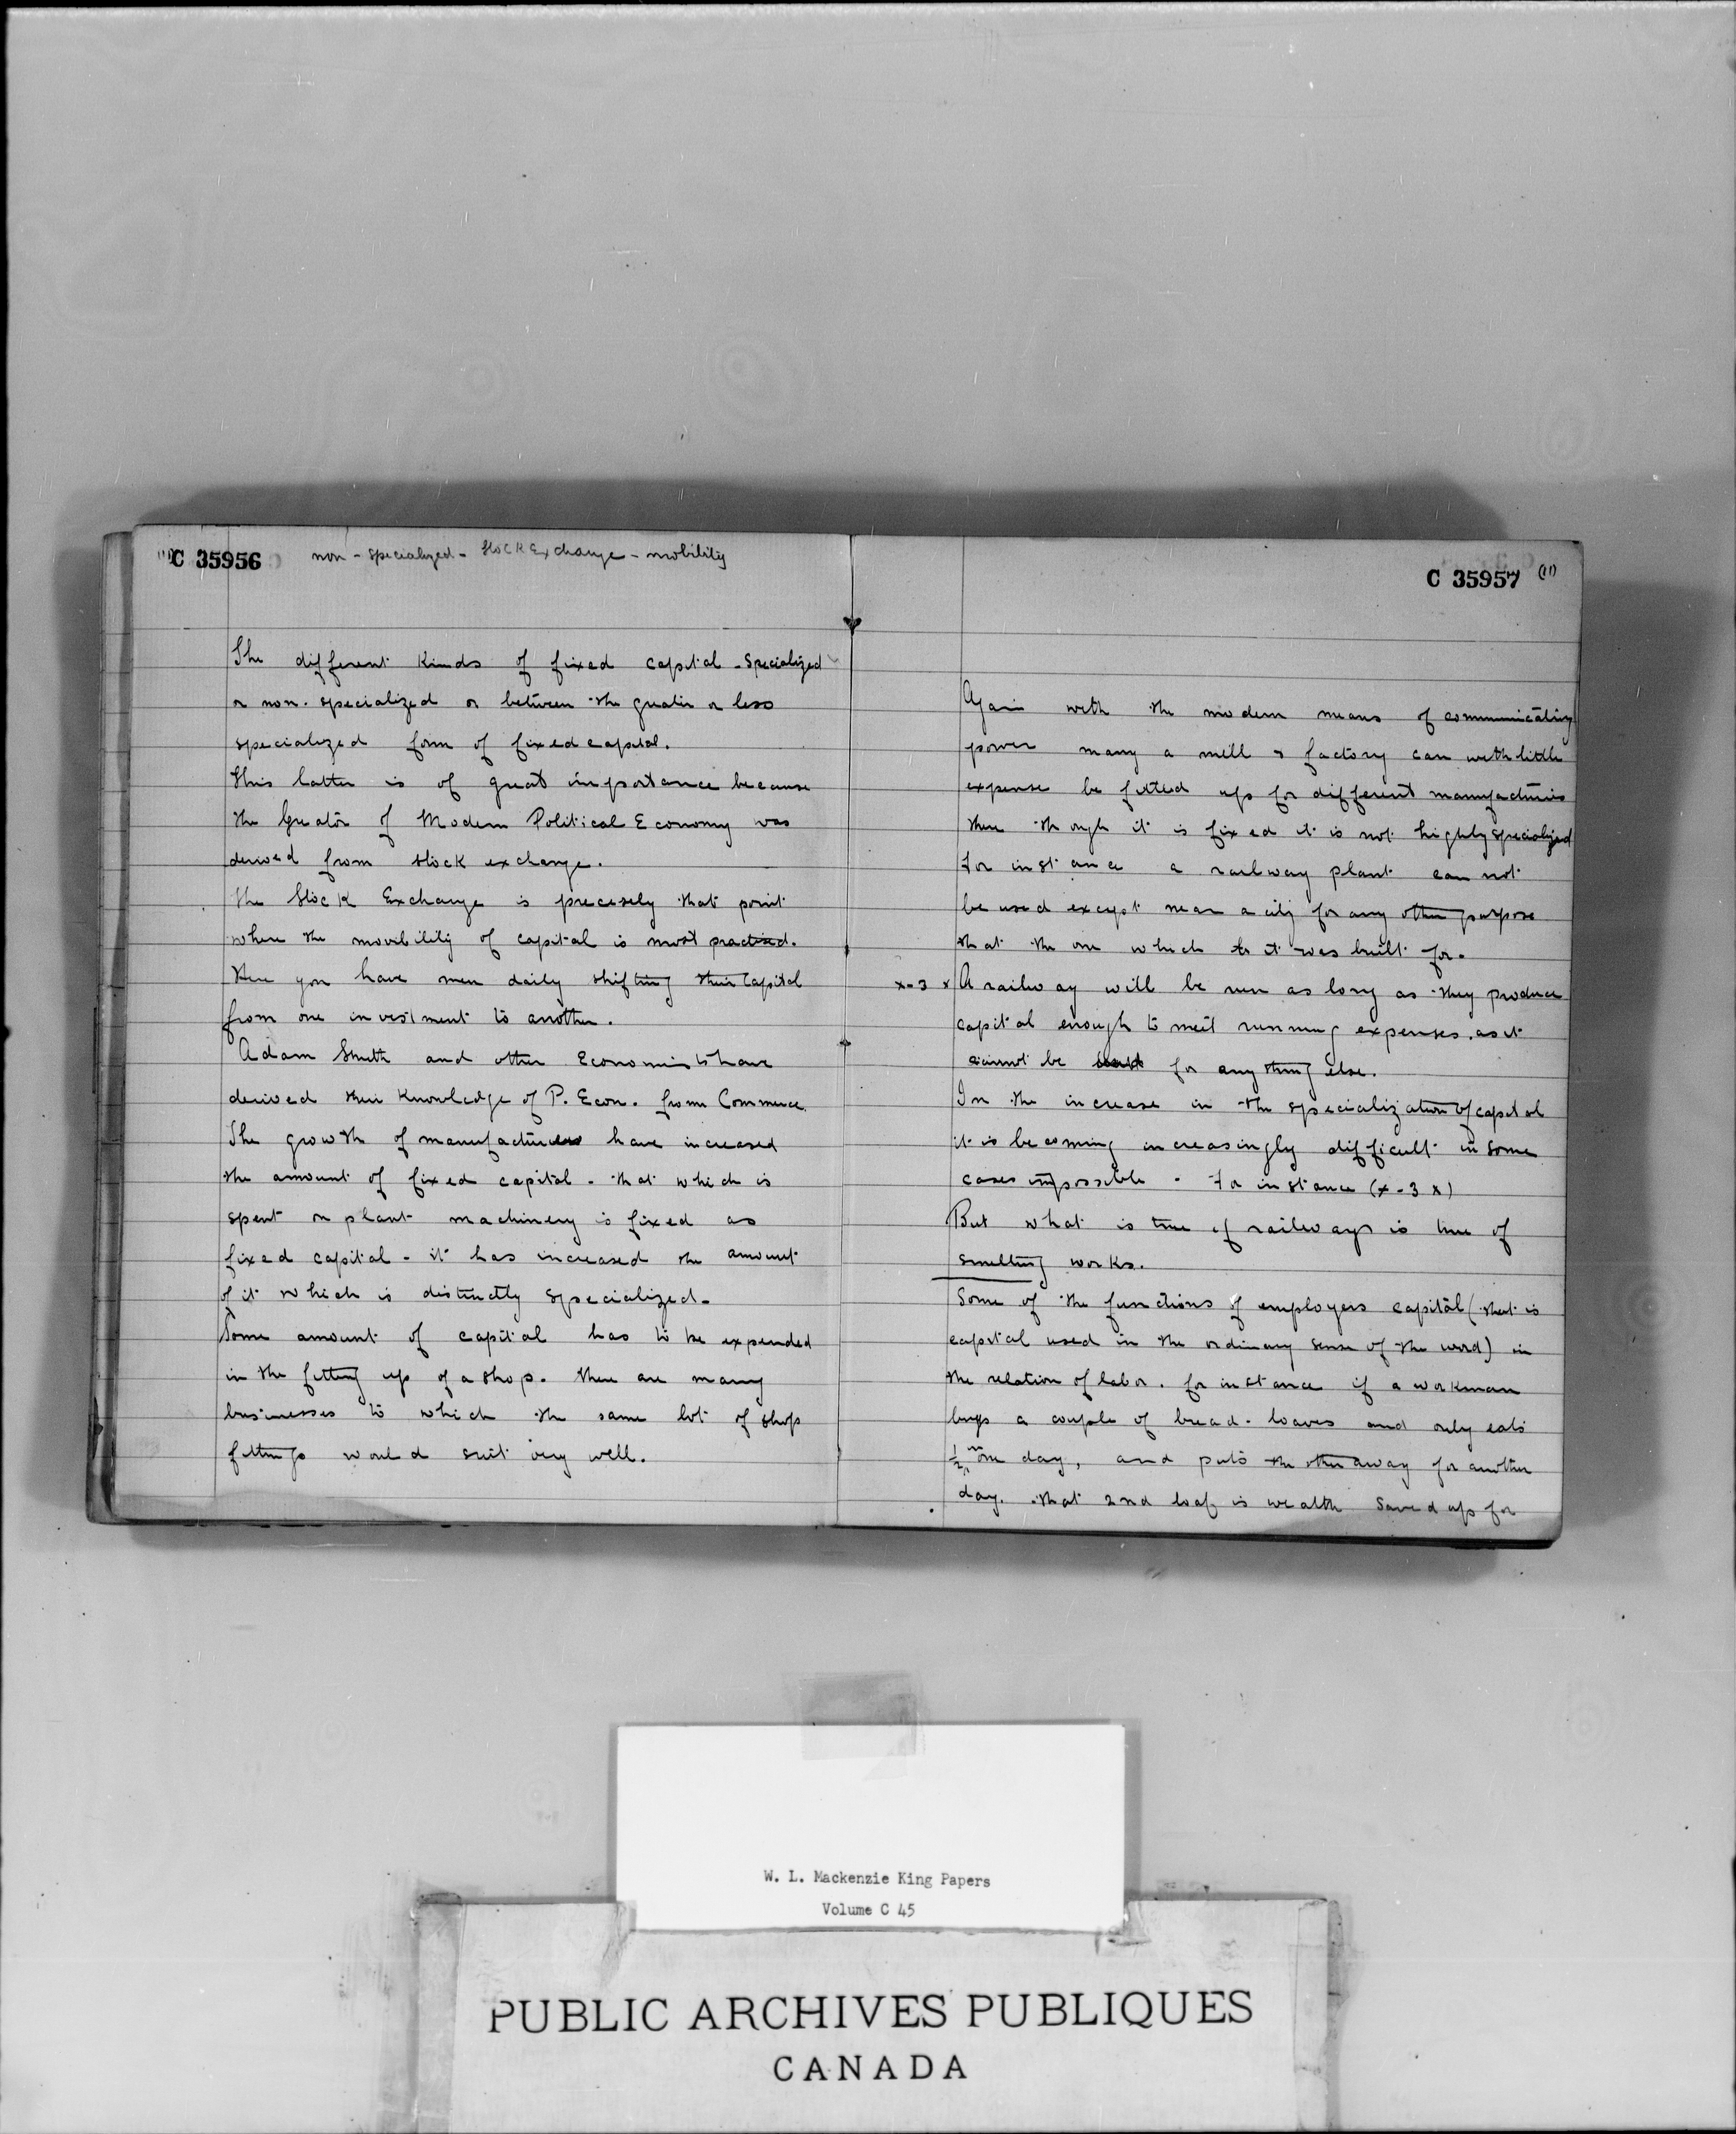 (11)
C 35956
non - specialized - Stock Exchange - mobility
The different kinds of fixed capital - specialized
or non. specialized or between the greater or less
specialized form of fixed capital.
This latter is of great importance because
the Greator of Modern Political Economy was
derived from stock exchange.
The Stock Exchange is precesely that point
where the movibility of capital is most practised.
Here you have men daily shifting their Capital
from one investment to another.
Adam Smith and other Economists have
derived their Knowledge of P. Econ. from Commerce.
The growth of manufactures have increased
the amount of fixed capital - that which is
spent on plant machinery is fixed as
fixed capital - it has increased the amount
of it which is distinctly specialized -
Some amount of capital has to be expended
in the fitting up of a shop. There are many
businesses to which the same lot of shop
fittings would suit very well.
C 35957 (11)
Again with the modern means of communicating
power many a mill & factory can with little
expense be fitted up for different manufactures
there though it is fixed it is not highly specialized
For instance a railway plant can not
be used except near a city for any other purpose
that the one which it was built for.
x-3 x A railway will be run as long as they produce
capital enough to meet running expenses. as it
cannot be for anything else.
In the increase in the specialization of capital
it is becoming increasingly difficult in some
cases impossible - For instance (x-3 x)
But what is true of railways is true of
smelting works.
Some of the functions of employers capital (that is
capital used in the ordinary sense of the word) in
the relation of labor. for instance if a workman
buys a couple of bread-loaves and only eats
½ on one day, and puts the other away for another
day. that 2nd loaf is wealth saved up for
W. L. Mackenzie King Papers
Volume C 45
PUBLIC ARCHIVES PUBLIQUES
CANADA